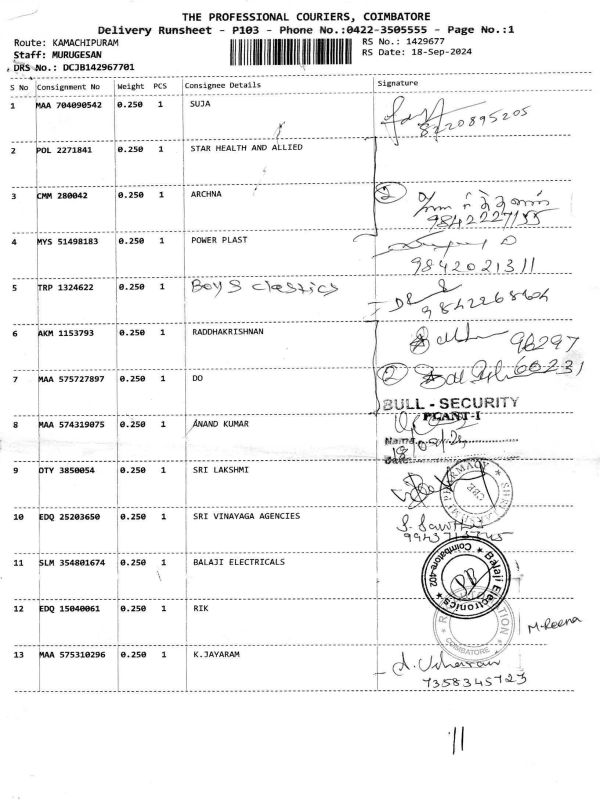 THE PROFESSIONAL COURIERS, COIMBATORE
Delivery Runsheet - P103 - Phone No.:0422-3505555 - Page No.:1
Route: KAMACHIPURAM RS No.: 1429677
Staff: MURUGESAN RS Date: 18-Sep-2024
DRS No.: DCJB142967701
S No Consignment No Weight PCS Consignee Details Signature
1 MAA 704090542 0.250 1 SUJA
8220895205
2 POL 2271841 0.250 1 STAR HEALTH AND ALLIED
3 CMM 280042 0.250 1 ARCHNA 2
9842227155
4 MYS 51498183 0.250 1 POWER PLAST
9842021311
5 TRP 1324622 0.250 1 Boys clastics
9842268604
6 AKM 1153793 0.250 1 RADDHAKRISHNAN
96297
60231
7 MAA 575727897 0.250 1 DO 2
BULL - SECURITY
PLANT-I
8 MAA 574319075 0.250 1 ANAND KUMAR
Name
Date
9 OTY 3850054 0.250 1 SRI LAKSHMI
PHARMACY
CBE
10 EDQ 25203650 0.250 1 SRI VINAYAGA AGENCIES
11 SLM 354801674 0.250 1 BALAJI ELECTRICALS
Balaji Electronics
Coimbatore-402
12 EDQ 15040061 0.250 1 RIK
COIMBATORE
M.Reena
13 MAA 575310296 0.250 1 K.JAYARAM
7358345723
11